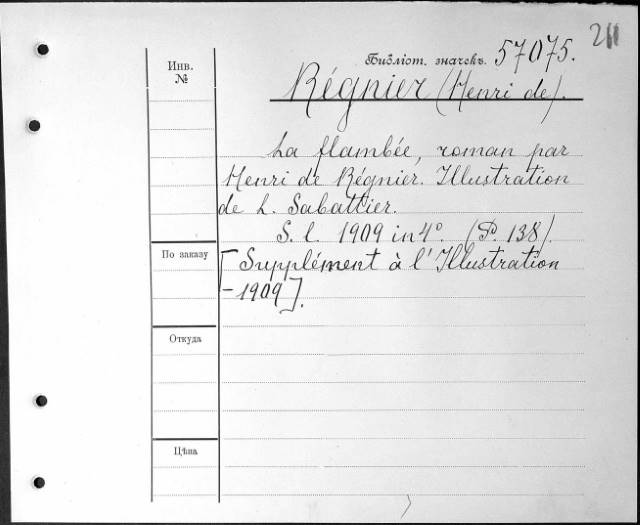 211
Библіот. значекъ. 57075.
Инв.
№
Régnier (Henri de).
La flambée, roman par
Henri de Régnier. Illustration
de L. Sabattier.
S. l. 1909 in 4°. (P. 138).
По заказу
[Supplément à l'Illustration
-1909].
Откуда
Цѣна